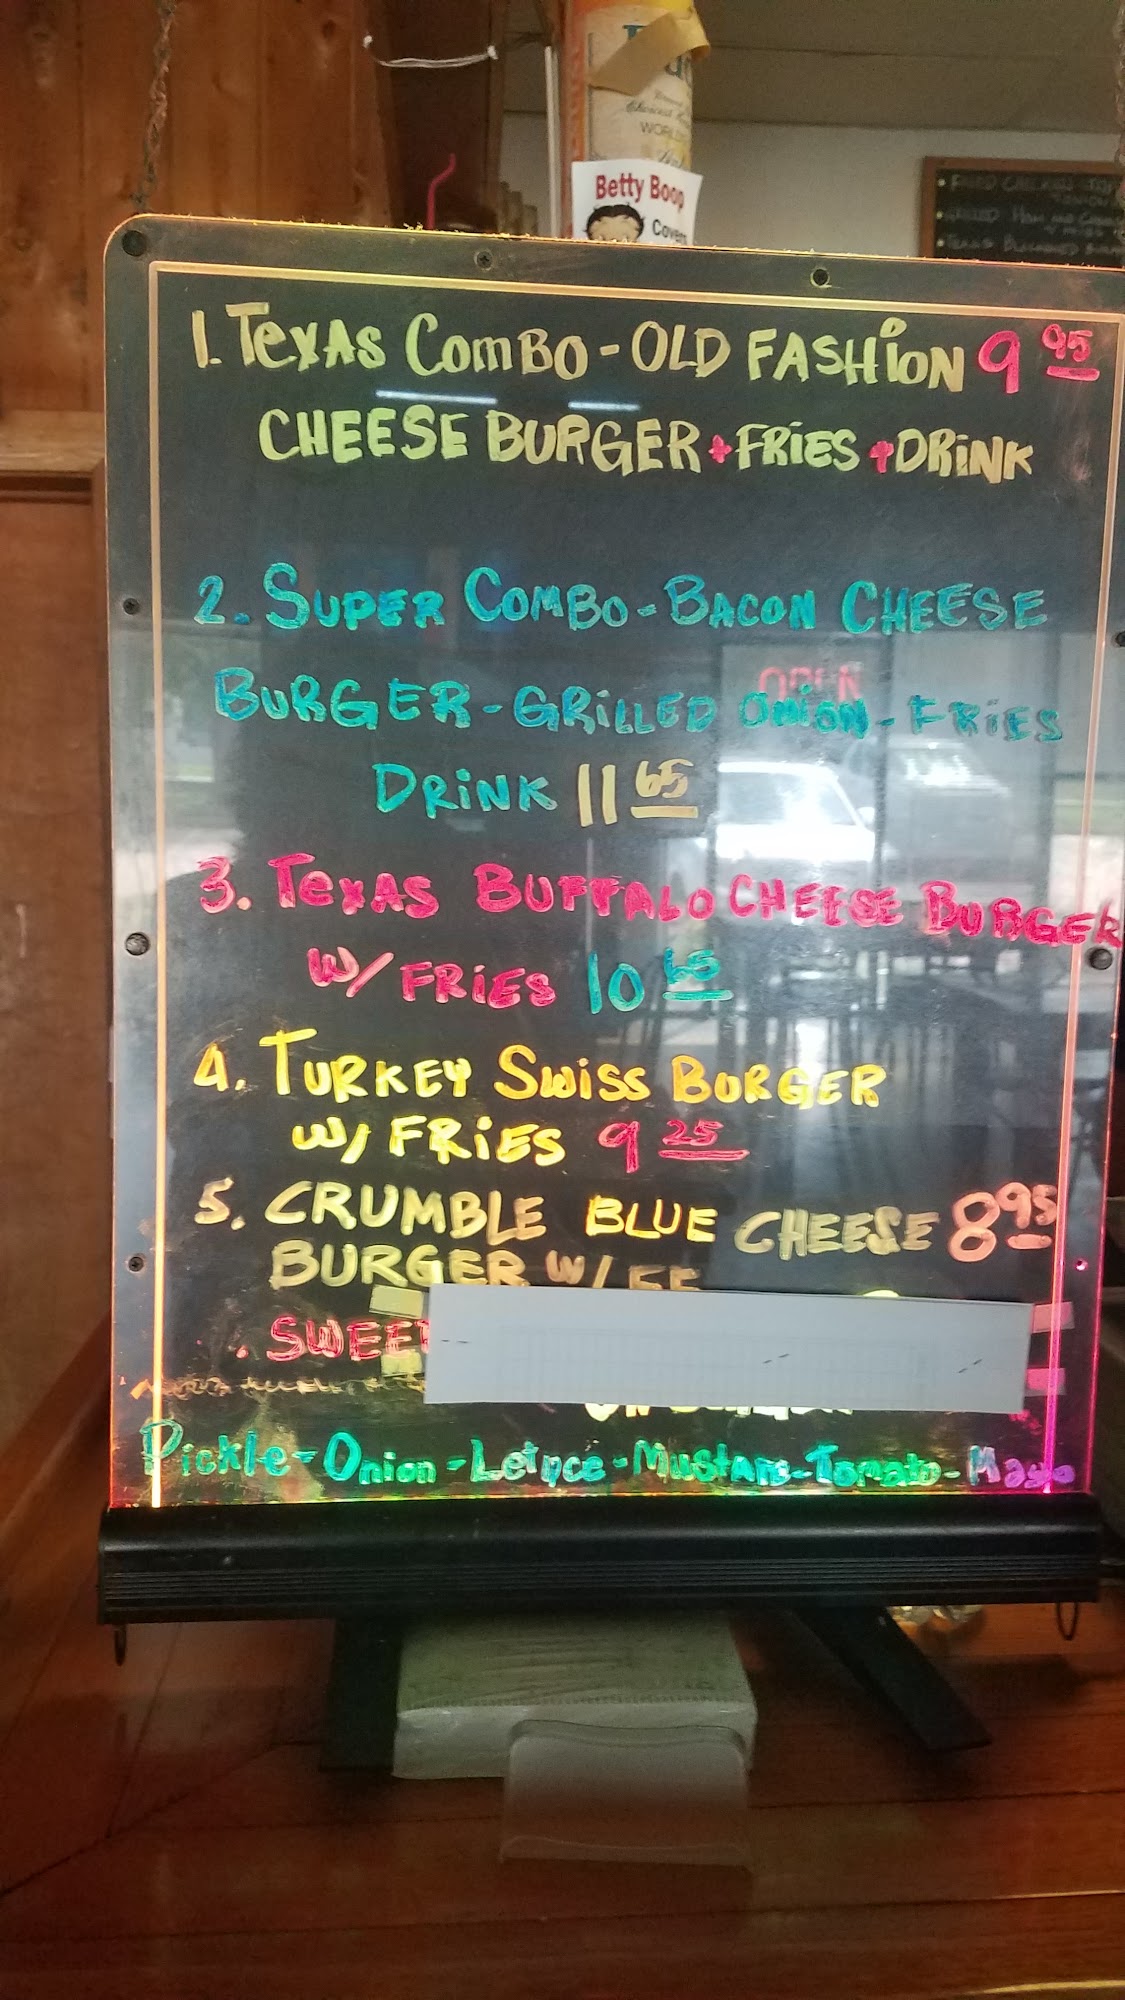 Betty Boop
Covers
WORLD
1. Texas Combo - OLD FASHiON 9 95
CHEESE BURGER + FRiES + DRiNK
2. SUPER COMBO - BACON CHEESE
OPEN
BURGER - GRiLLED ONiON - FRiES
DRiNK 11 65
3. Texas BUFFALO CHEESE BURGER
W/ FRiES 10 65
4. TURKEY SWiSS BURGER
W/ FRiES 9 25
5. CRUMBLE BLUE CHEESE 8 95
BURGER W/ FF
. SWEET
Pickle - Onion - Letuce - Mustard - Tomato - Mayo